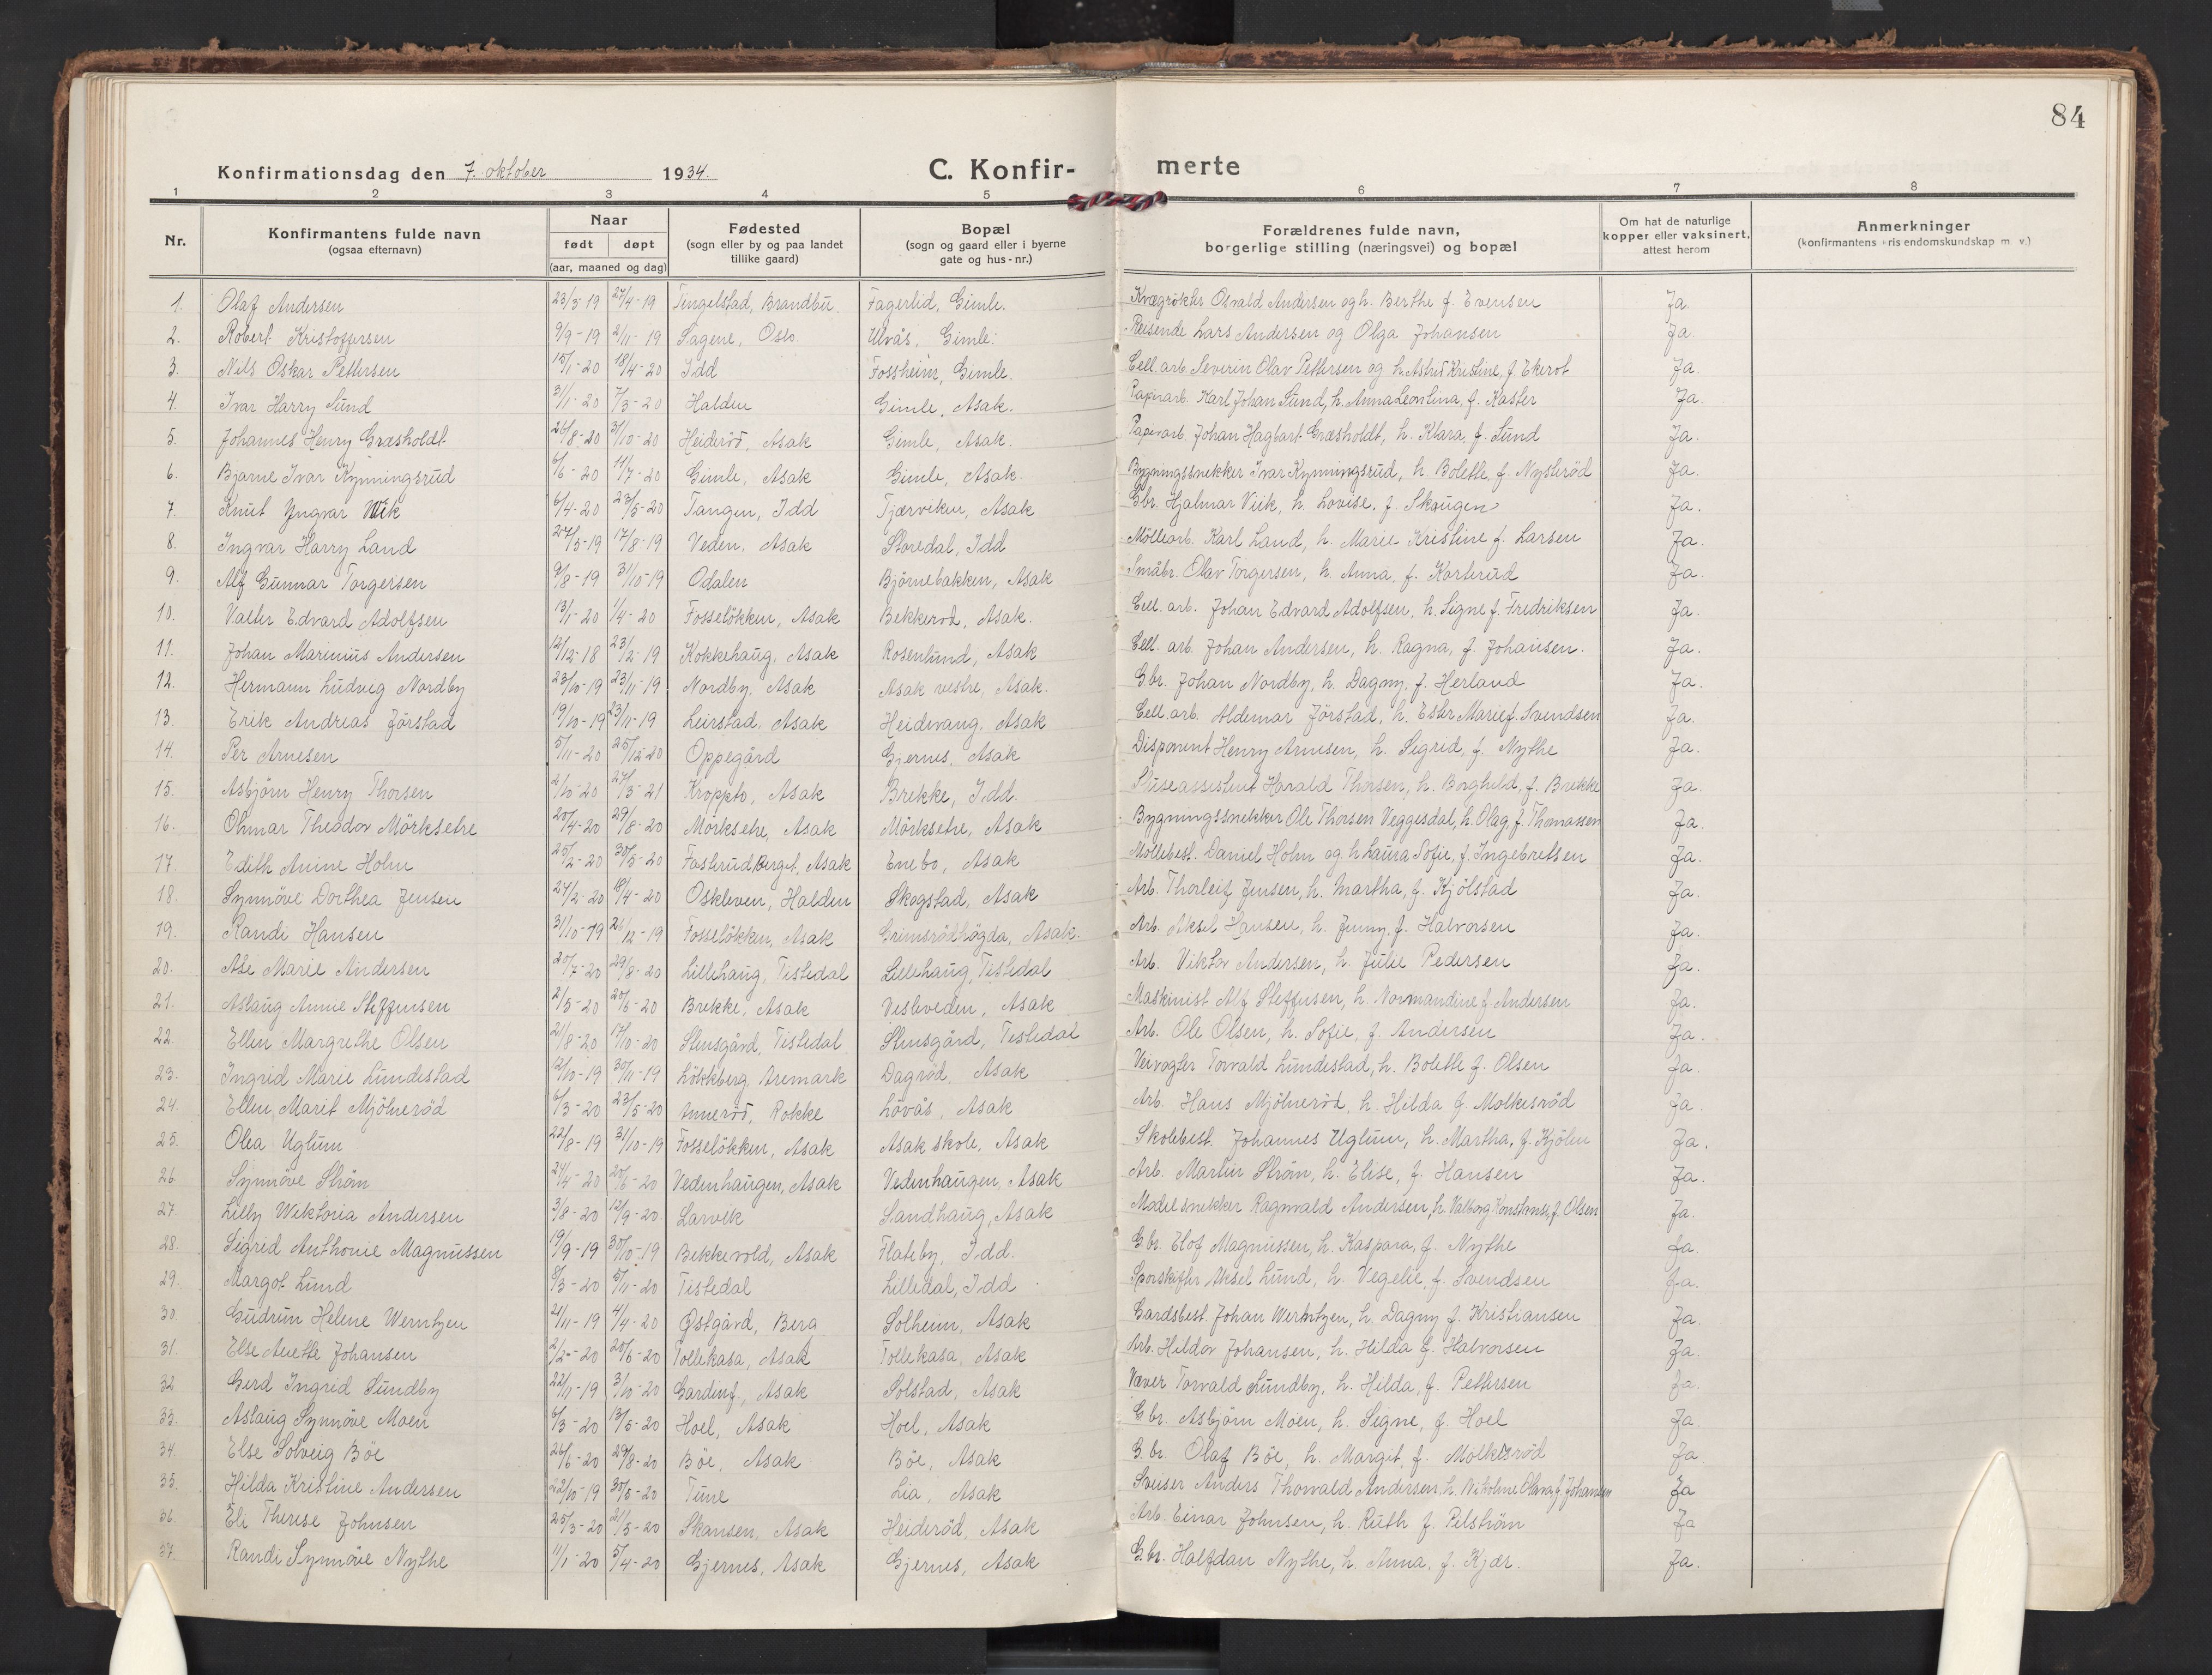 84
Konfirmationsdag den 7. oktober 1934. C. Konfir- merte
1 2 3 4 5 6 7 8
Nr. Konfirmantens fulde navn (ogsaa efternavn) Naar født døpt (aar, maaned og dag) Fødested (sogn eller by og paa landet tillike gaard) Bopæl (sogn og gaard eller i byerne gate og hus-nr.) Forældrenes fulde navn, borgerlige stilling (næringsvei) og bopæl Om hat de naturlige kopper eller vaksinert, attest herom Anmerkninger (konfirmantens kristendomskundskap m. v.)
1. Olaf Andersen 23/3-19 27/4-19 Tingelstad, Brandbu Fagerlid, Gimle. Kvægrökter Osvald Andersen og h. Berthe f. Evensen Ja.
2. Robert Kristofersen 9/9-19 2/11-19 Sagene, Oslo. Ulvås, Gimle. Reisende Lars Andersen og Olga Johansen Ja.
3. Nils Oskar Pettersen 15/1-20 18/4-20 Idd Fossheim, Gimle. Cell. arb. Severin Olav Pettersen og h. Astrid Kristine, f. Ekerot Ja.
4. Ivar Harry Sund 3/1-20 7/3-20 Halden Gimle, Asak. Papirarb. Karl Johan Sund, h. Anna Leontina, f. Kaster Ja.
5. Johannes Henry Græsholdt 26/8-20 31/10-20 Heideröd, Asak Gimle, Asak. Papirarb. Johan Hagbart Græsholdt, h. Klara, f. Sund Ja.
6. Bjarne Ivar Kynningsrud 6/6-20 11/7-20 Gimle, Asak Gimle, Asak. Bygningssnekker Ivar Kynningsrud, h. Bolette, f. Nyströd Ja.
7. Knut Yngvar Wiik 6/4-20 23/5-20 Tangen, Idd Tjærviken, Asak Gbr. Hjalmar Viik, h. Lovise, f. Skaugen Ja.
8. Ingvar Harry Land 27/5-19 17/8-19 Veden, Asak Storedal, Idd Möllearb. Karl Land, h. Marie Kristine f. Larsen Ja.
9. Alf Gunnar Torgersen 9/8-19 31/10-19 Odalen Björnebakken, Asak Småbr. Olav Torgersen, h. Anna, f. Karterud Ja.
10. Valter Edvard Adolfsen 13/1-20 1/4-20 Fosselökken, Asak Bekkeröd, Asak. Cell. arb. Johan Edvard Adolfsen, h. Signe f. Fredriksen Ja
11. Johan Marinius Andersen 12/12-18 23/2-19 Kokkehaug, Asak Rosenlund, Asak Cell. arb. Johan Andersen, h. Ragna, f. Johansen. Ja.
12. Hermann Ludvig Nordby 23/10-19 23/11-19 Nordby, Asak Asak vestre, Asak. Gbr. Johan Nordby, h. Dagny, f. Herland Ja.
13. Erik Andreas Jörstad 19/10-19 23/11-19 Leirstad, Asak Heidevang, Asak Cell. arb. Aldemar Jörstad, h. Ester Marie f. Svendsen Ja.
14. Per Arnesen 5/11-20 25/12-20 Oppegård Gjernes, Asak Disponent Henry Arnesen, h. Sigrid, f. Nythe Ja.
15. Asbjörn Henry Thorsen 2/10-20 27/3-21 Kroppto, Asak Brekke, Idd. Sluseassistent Harald Thorsen, h. Borghild, f. Brekke Ja.
16. Othmar Theodor Mörksetre 20/4-20 29/8-20 Mörksetre, Asak Mörksetre, Asak Bygningssnekker Ole Thorsen Veggesdal, h. Olag, f. Thomassen Ja.
17. Edith Anine Holm 25/2-20 30/5-20 Fasterudberget, Asak Enebo, Asak Möllebest. Daniel Holm og h. Laura Sofie, f. Ingebretsen Ja.
18. Synnöve Dorthea Jensen 27/2-20 18/4-20 Oskleven, Halden Skogstad, Asak Arb. Thorleif Jensen, h. Martha, f. Kjölstad Ja.
19. Randi Hansen 31/10-19 26/12-19 Fosselökken, Asak Grimsrödhögda, Asak. Arb. Aksel Hansen, h. Jenny, f. Halvorsen Ja.
20. Åse Marie Andersen 20/7-20 29/8-20 Lillehaug, Tistedal Lillehaug, Tistedal Arb. Viktor Andersen, h. Julie Pedersen Ja.
21. Aslaug Annie Steffensen 2/5-20 20/6-20 Brekke, Asak Vestveden, Asak Maskinist Alf Steffensen, h. Normandine f. Andersen Ja.
22. Ellen Margrethe Olsen 21/8-20 17/10-20 Stensgård, Tistedal Stensgård, Tistedal Arb. Ole Olsen, h. Sofie, f. Andersen Ja.
23. Ingrid Marie Lundestad 12/10-19 30/11-19 Lökkeberg, Aremark Dagröd, Asak Veivogter Torvald Lundestad, h. Bolette f. Olsen Ja.
24. Ellen Marit Mjölneröd 6/3-20 23/5-20 Anneröd, Rokke Lövås, Asak Arb. Hans Mjölneröd, h. Hilda f. Molkesröd Ja.
25. Olea Uglum 22/8-19 31/10-19 Fosselökken, Asak Asak skole, Asak Skolebest. Johannes Uglum, h. Martha, f. Kjölen Ja.
26. Synnöve Ström 24/4-20 20/6-20 Vedenhaugen, Asak Vedenhaugen, Asak Arb. Martin Ström, h. Elise, f. Hansen Ja.
27. Lilly Wiktoria Andersen 3/8-20 12/9-20 Larvik Sandhaug, Asak Modelsnekker Ragnvald Andersen, h. Valborg Konstanse, f. Olsen Ja.
28. Sigrid Anthonie Magnussen 19/9-19 30/10-19 Bekkevold, Asak Flateby, Idd. Gbr. Elof Magnussen, h. Kaspara, f. Nythe Ja.
29. Margot Lund 8/3-20 5/11-20 Tistedal Lilledal, Idd Sporskifter Aksel Lund, h. Vegelie f. Svendsen Ja.
30. Gudrun Helene Werntzen 2/11-19 4/4-20 Östgård, Berg Solheim, Asak Gardsbest. Johan Werntzen, h. Dagny f. Kristiansen Ja.
31. Else Anette Johansen 2/2-20 20/6-20 Tollekasa, Asak Tollekasa, Asak Arb. Hildor Johansen, h. Hilda f. Halvorsen Ja.
32 Gerd Ingrid Sundby 22/11-19 3/10-20 Garding, Asak Solstad, Asak Væver Torvald Sundby, h. Hilda, f. Pettersen Ja.
33. Aslaug Synnöve Moen 6/3-20 13/5-20 Hoel, Asak Hoel, Asak Gbr. Asbjörn Moen, h. Signe, f. Hoel Ja.
34. Else Solveig Böe 26/6-20 29/8-20 Böe, Asak Böe, Asak G.br. Olaf Böe, h. Margit, f. Molkesröd Ja
35. Hilda Kristine Andersen 22/10-19 30/5-20 Tune Lia, Asak Sveiser Anders Thorvald Andersen, h. Nikoline Olava, f. Johansen Ja
36. Eli Therese Johnsen 25/3-20 21/5-20 Skansen, Asak Heideröd, Asak Arb. Einar Johnsen, h. Ruth f. Pelström Ja
37. Randi Synnöve Nythe 11/1-20 5/4-20 Gjernes, Asak Gjernes, Asak G.br. Halfdan Nythe, h. Anna, f. Kjær. Ja.